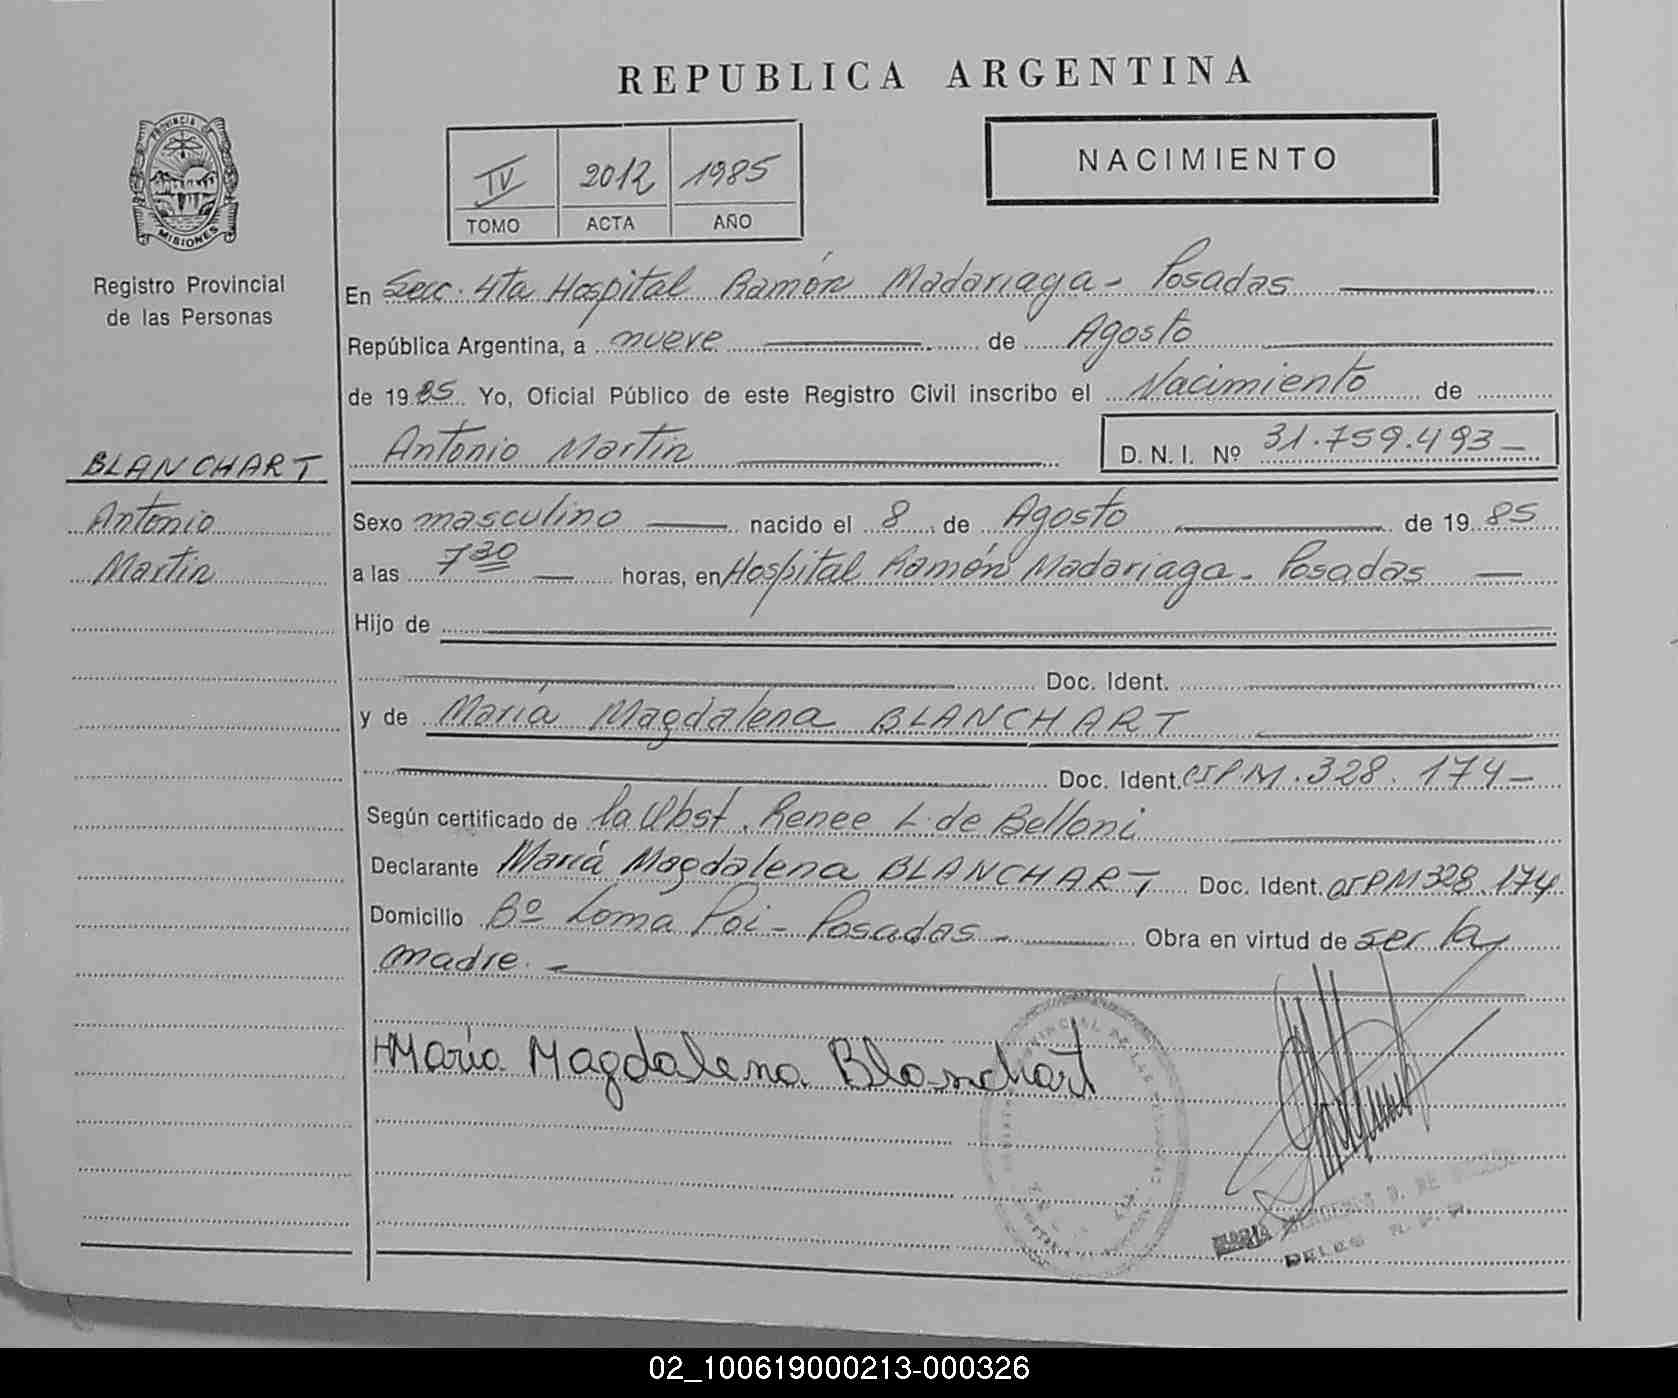 REPUBLICA ARGENTINA
IV 2012 1985
TOMO ACTA AÑO
NACIMIENTO
PROVINCIA DE
MISIONES
Registro Provincial
de las Personas
BLANCHART
Antonio
Martin
En Secc. 4ta Hospital Ramón Madariaga - Posadas
República Argentina, a nueve de Agosto
de 1985 Yo, Oficial Público de este Registro Civil inscribo el Nacimiento de
Antonio Martin D.N.I. Nº 31.759.493-
Sexo masculino nacido el 8 de Agosto de 1985
a las 7 30 horas, en Hospital Ramón Madariaga - Posadas
Hijo de
Doc. Ident.
y de María Magdalena BLANCHART
Doc. Ident. CIPM.328.174-
Según certificado de la Obst. Renee L. de Belloni
Declarante María Magdalena BLANCHART Doc. Ident. CIPM328.174
Domicilio Bº Loma Poi - Posadas - Obra en virtud de ser la
madre. -
María Magdalena Blanchart
02_100619000213-000326